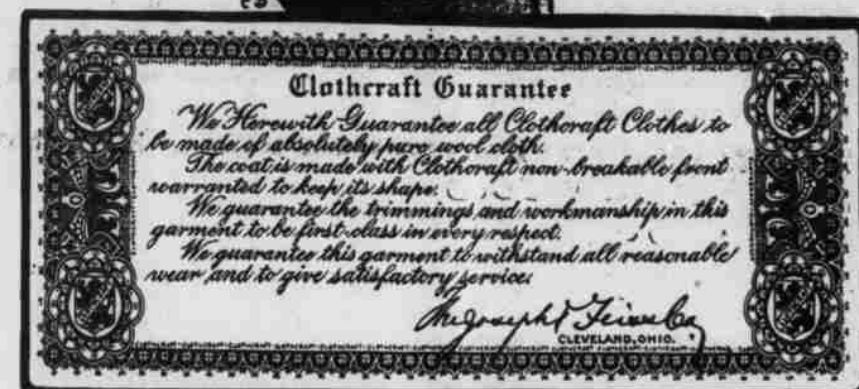 Clothcraft Guarantee
We Herewith Guarantee all Clothcraft Clothes to
be made of absolutely pure wool cloth.
The coat is made with Clothcraft non-breakable front
warranted to keep its shape.
We guarantee the trimmings and workmanship in this
garment to be first-class in every respect.
We guarantee this garment to withstand all reasonable
wear and to give satisfactory service.
The Joseph & Feiss Co
CLEVELAND, OHIO.